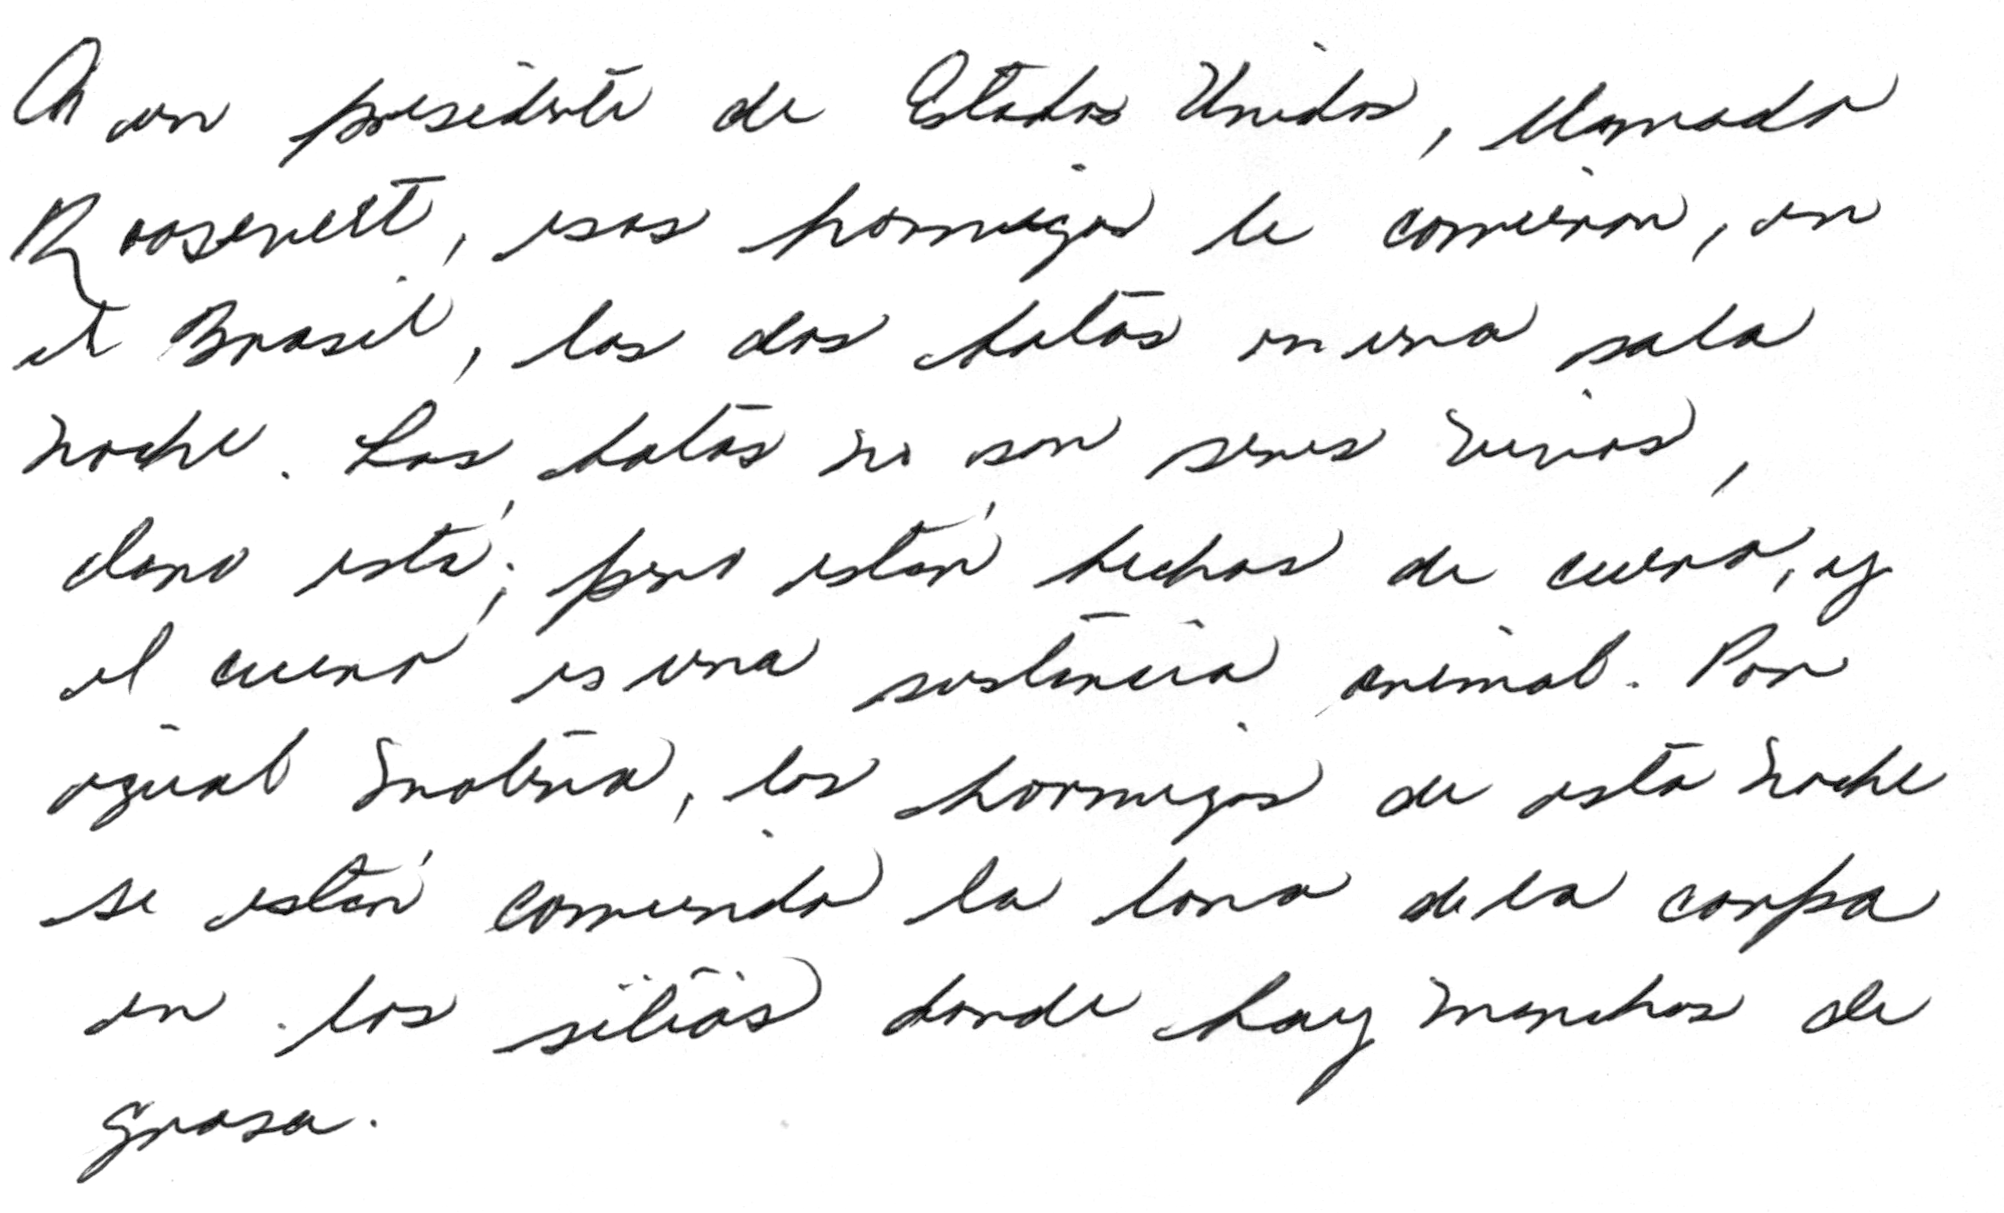 A un presidente de Estados Unidos, llamado
Roosevelt, esas hormigas le comieron, en
el Brasil, las dos botas en una sola
noche. Las botas no son seres vivos,
claro está; pero están hechas de cuero, y
el cuero es una sustancia animal. Por
igual motivo, las hormigas de esta noche
se están comiendo la lona de la carpa
en los sitios donde hay manchas de
grasa.